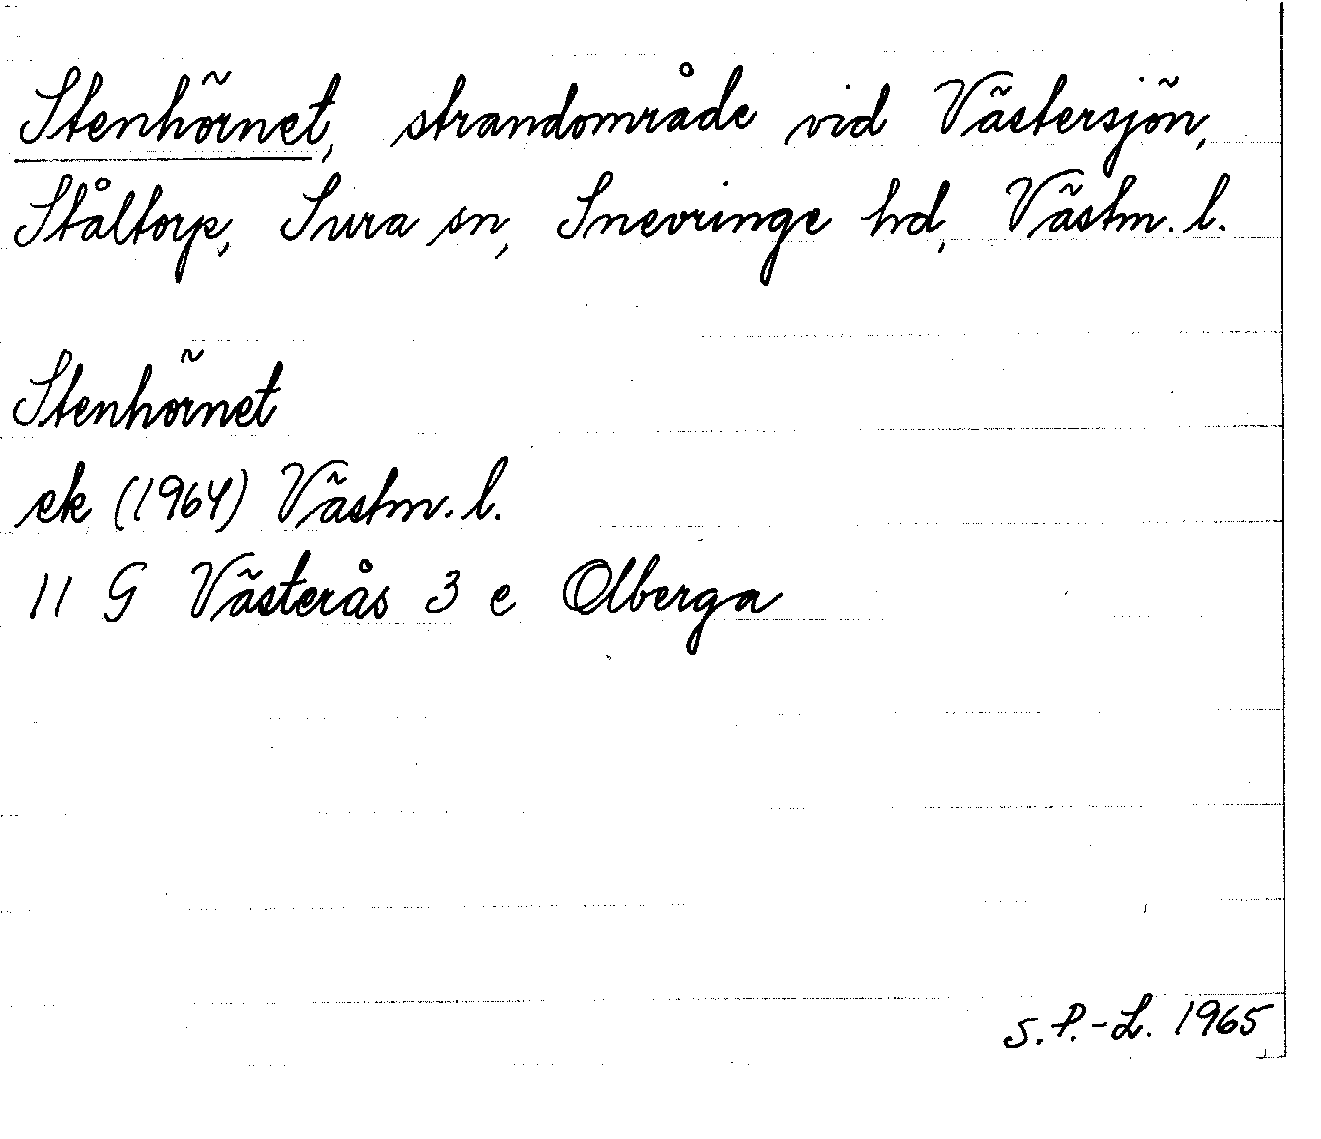 Stenhörnet, strandområde vid Västersjön,
Ståltorp, Sura sn, Snevringe hd, Västm. l.
Stenhörnet
ek (1964) Västm. l.
11 G Västerås 3 e Olberga
S. P.-L. 1965